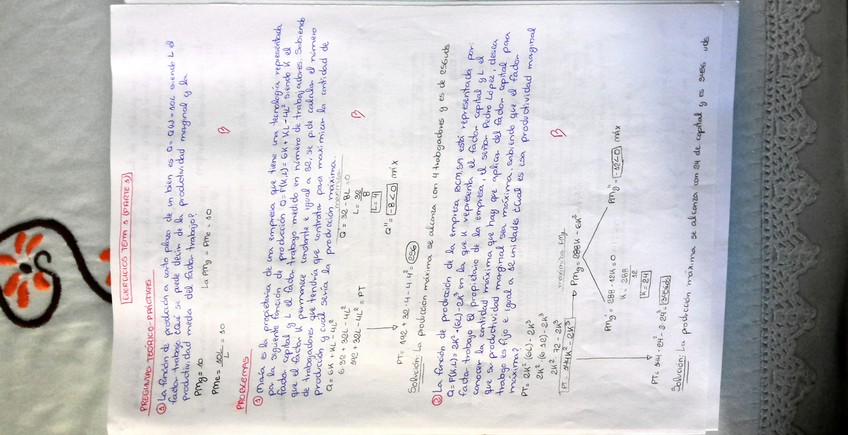 EJERCICIOS TEMA 3 (PARTE 1)
PREGUNTAS TEÓRICO-PRÁCTICAS
③ La función de producción a corto plazo de un bien es Q = Q(L) = 10L siendo L el
factor trabajo. ¿Qué se puede decir de la productividad marginal y la
productividad media del factor trabajo?
PMg = 10
La PMg = PMe = 10
PMe = 10L/L = 10
PROBLEMAS
① María es la propietaria de una empresa que tiene una tecnología representada
por la siguiente función de producción Q = F(K,L) = 6K + KL - 4L² siendo K el
factor capital y L el factor trabajo medido en número de trabajadores. Sabiendo
que el factor K permanece constante e igual a 32, se pide calcular el número
de trabajadores que tendría que contratar para maximizar la cantidad de
producción y cuál sería la producción máxima.
Q = 6K + KL - 4L²
6·32 + 32L - 4L²
192 + 32L - 4L² = PT
Q' = 32 - 8L = 0
L = 32/8
L = 4
Q'' = -8 < 0 máx
PT = 192 + 32·4 - 4·4² = 256
Solución: La producción máxima se alcanza con 4 trabajadores y es de 256 uds
② La función de producción de la empresa BCM, SA está representada por:
Q = F(K,L) = 2K²·(6L) - 2K³ en la que K representa el factor capital y L el
factor trabajo. El propietario de la empresa, el señor Pedro López, desea
conocer la cantidad máxima que hay que aplicar del factor capital para
que su productividad marginal sea máxima, sabiendo que el factor
trabajo es fijo e igual a 12 unidades. ¿Cuál es esa productividad marginal
máxima?
PT = 2K²(6L) - 2K³
2K²(6·12) - 2K³
2K²·72 - 2K³
PT = 144K² - 2K³
PMg = 288K - 6K²
PMg' = 288 - 12K = 0
K = 288/12
K = 24
PMg'' = -12 < 0 máx
PT = 144·24² - 2·24³ =
Solución: La producción máxima se alcanza con 24 de capital y es 3456 uds